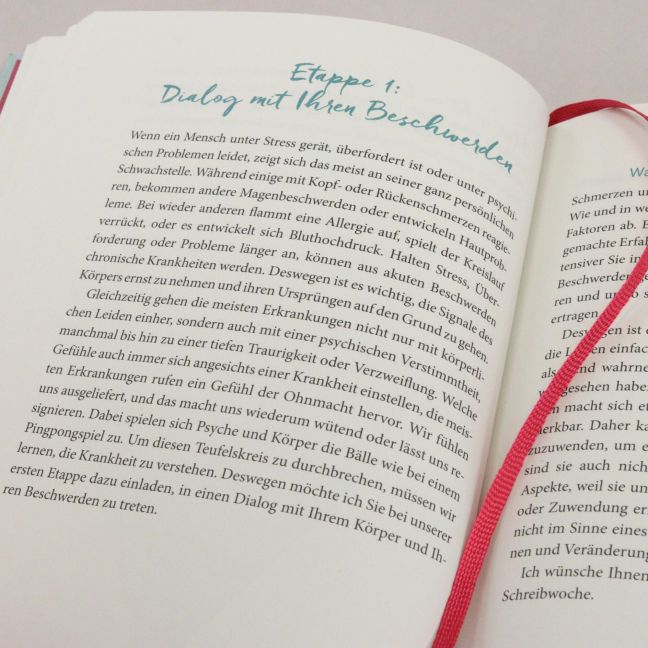 Etappe 1:
Dialog mit Ihren Beschwerden
Wenn ein Mensch unter Stress gerät, überfordert ist oder unter psychi-
schen Problemen leidet, zeigt sich das meist an seiner ganz persönlichen
Schwachstelle. Während einige mit Kopf- oder Rückenschmerzen reagie-
ren, bekommen andere Magenbeschwerden oder entwickeln Hautprob-
leme. Bei wieder anderen flammt eine Allergie auf, spielt der Kreislauf
verrückt, oder es entwickelt sich Bluthochdruck. Halten Stress, Über-
forderung oder Probleme länger an, können aus akuten Beschwerden
chronische Krankheiten werden. Deswegen ist es wichtig, die Signale des
Körpers ernst zu nehmen und ihren Ursprüngen auf den Grund zu gehen.
Gleichzeitig gehen die meisten Erkrankungen nicht nur mit körperli-
chen Leiden einher, sondern auch mit einer psychischen Verstimmtheit,
manchmal bis hin zu einer tiefen Traurigkeit oder Verzweiflung. Welche
Gefühle auch immer sich angesichts einer Krankheit einstellen, die meis-
ten Erkrankungen rufen ein Gefühl der Ohnmacht hervor. Wir fühlen
uns ausgeliefert, und das macht uns wiederum wütend oder lässt uns re-
signieren. Dabei spielen sich Psyche und Körper die Bälle wie bei einem
Pingpongspiel zu. Um diesen Teufelskreis zu durchbrechen, müssen wir
lernen, die Krankheit zu verstehen. Deswegen möchte ich Sie bei unserer
ersten Etappe dazu einladen, in einen Dialog mit Ihrem Körper und Ih-
ren Beschwerden zu treten.
Schmerzen
Wie und in
Faktoren ab.
gemachte
tensiver Sie in
Beschwerden
ren und
ertragen.
ist
die einfach
als und
haben
macht sich
Daher
zuzuwenden, um
sind sie auch
Aspekte, weil sie
oder Zuwendung
nicht im Sinne eines
nen und
Ich wünsche Ihnen
Schreibwoche.